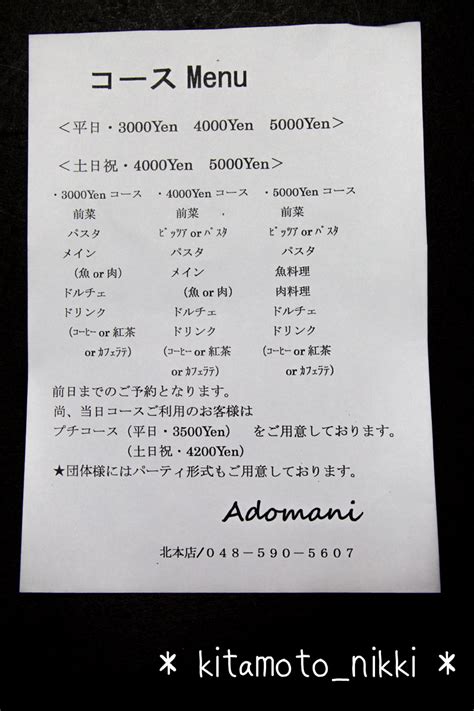 コース Menu
＜平日・3000Yen 4000Yen 5000Yen＞
＜土日祝・4000Yen 5000Yen＞
・3000Yen コース ・4000Yen コース ・5000Yen コース
前菜 前菜 前菜
パスタ ﾋﾟｯﾂｱ or ﾊﾟｽﾀ ﾋﾟｯﾂｱ or ﾊﾟｽﾀ
メイン パスタ パスタ
（魚 or 肉） メイン 魚料理
ドルチェ （魚 or 肉） 肉料理
ドリンク ドルチェ ドルチェ
（ｺｰﾋｰ or 紅茶 ドリンク ドリンク
or ｶﾌｪﾗﾃ） （ｺｰﾋｰ or 紅茶 （ｺｰﾋｰ or 紅茶
or ｶﾌｪﾗﾃ） or ｶﾌｪﾗﾃ）
前日までのご予約となります。
尚、当日コースご利用のお客様は
プチコース（平日・3500Yen） をご用意しております。
（土日祝・4200Yen）
★団体様にはパーティ形式もご用意しております。
Adomani
北本店/０４８－５９０－５６０７
* kitamoto_nikki *